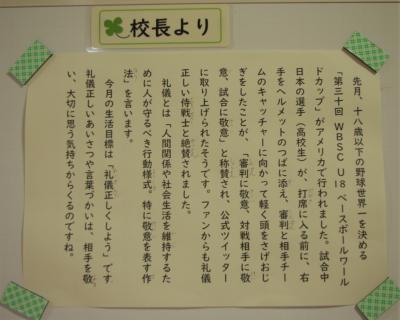 校長より
先月、十八歳以下の野球世界一を決める
「第三十回 WBSC U18 ベースボールワール
ドカップ」がアメリカで行われました。試合中
日本の選手（高校生）が、打席に入る前に、右
手をヘルメットのつばに添え、審判と相手チー
ムのキャッチャーに向かって軽く頭をさげおじ
ぎをしたことが、「審判に敬意、対戦相手に敬
意、試合に敬意」と称賛され、公式ツイッター
に取り上げられたそうです。ファンからも礼儀
正しい侍戦士と絶賛されました。
礼儀とは「人間関係や社会生活を維持するた
めに人が守るべき行動様式。特に敬意を表す作
法」を言います。
今月の生活目標は「礼儀正しくしよう」です
礼儀正しいあいさつや言葉づかいは、相手を敬
い、大切に思う気持ちからくるのですね。